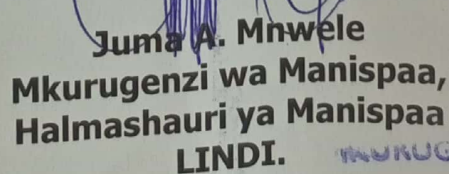 Juma A. Mnwele
Mkurugenzi wa Manispaa,
Halmashauri ya Manispaa
LINDI.